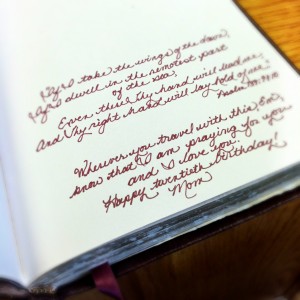 If I take the wings of the dawn,
If I dwell in the remotest part
of the sea,
Even there Thy hand will lead me,
And Thy right hand will lay hold of me."
Psalm 139:9,10
Wherever you travel with this Em,
know that I am praying for you
and I love you.
Happy twentieth birthday!
Mom